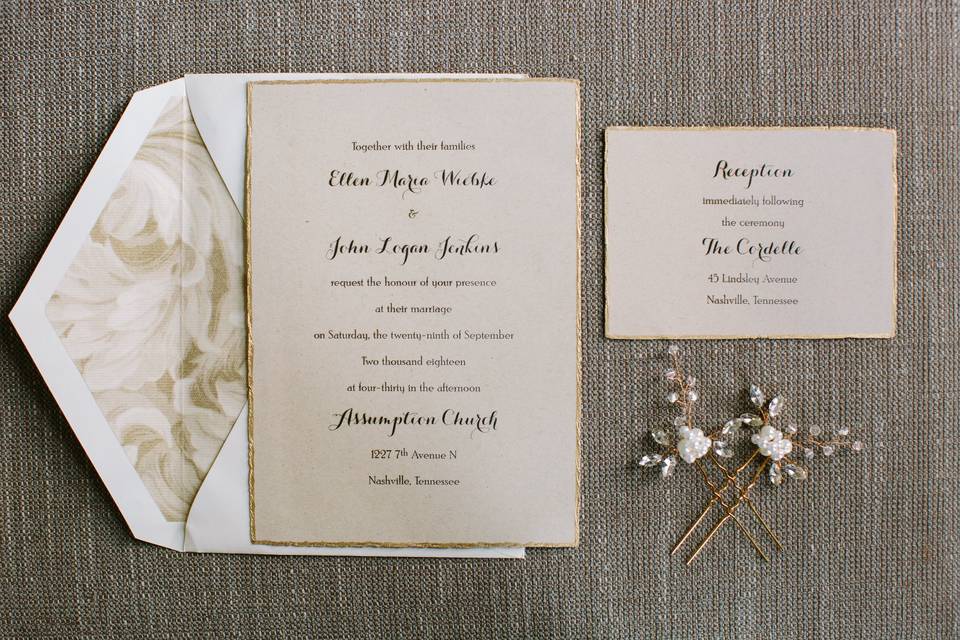 Together with their families
Ellen Maria Wiebke
&
John Logan Jenkins
request the honour of your presence
at their marriage
on Saturday, the twenty-ninth of September
Two thousand eighteen
at four-thirty in the afternoon
Assumption Church
1227 7th Avenue N
Nashville, Tennessee
Reception
immediately following
the ceremony
The Cordelle
45 Lindsley Avenue
Nashville, Tennessee